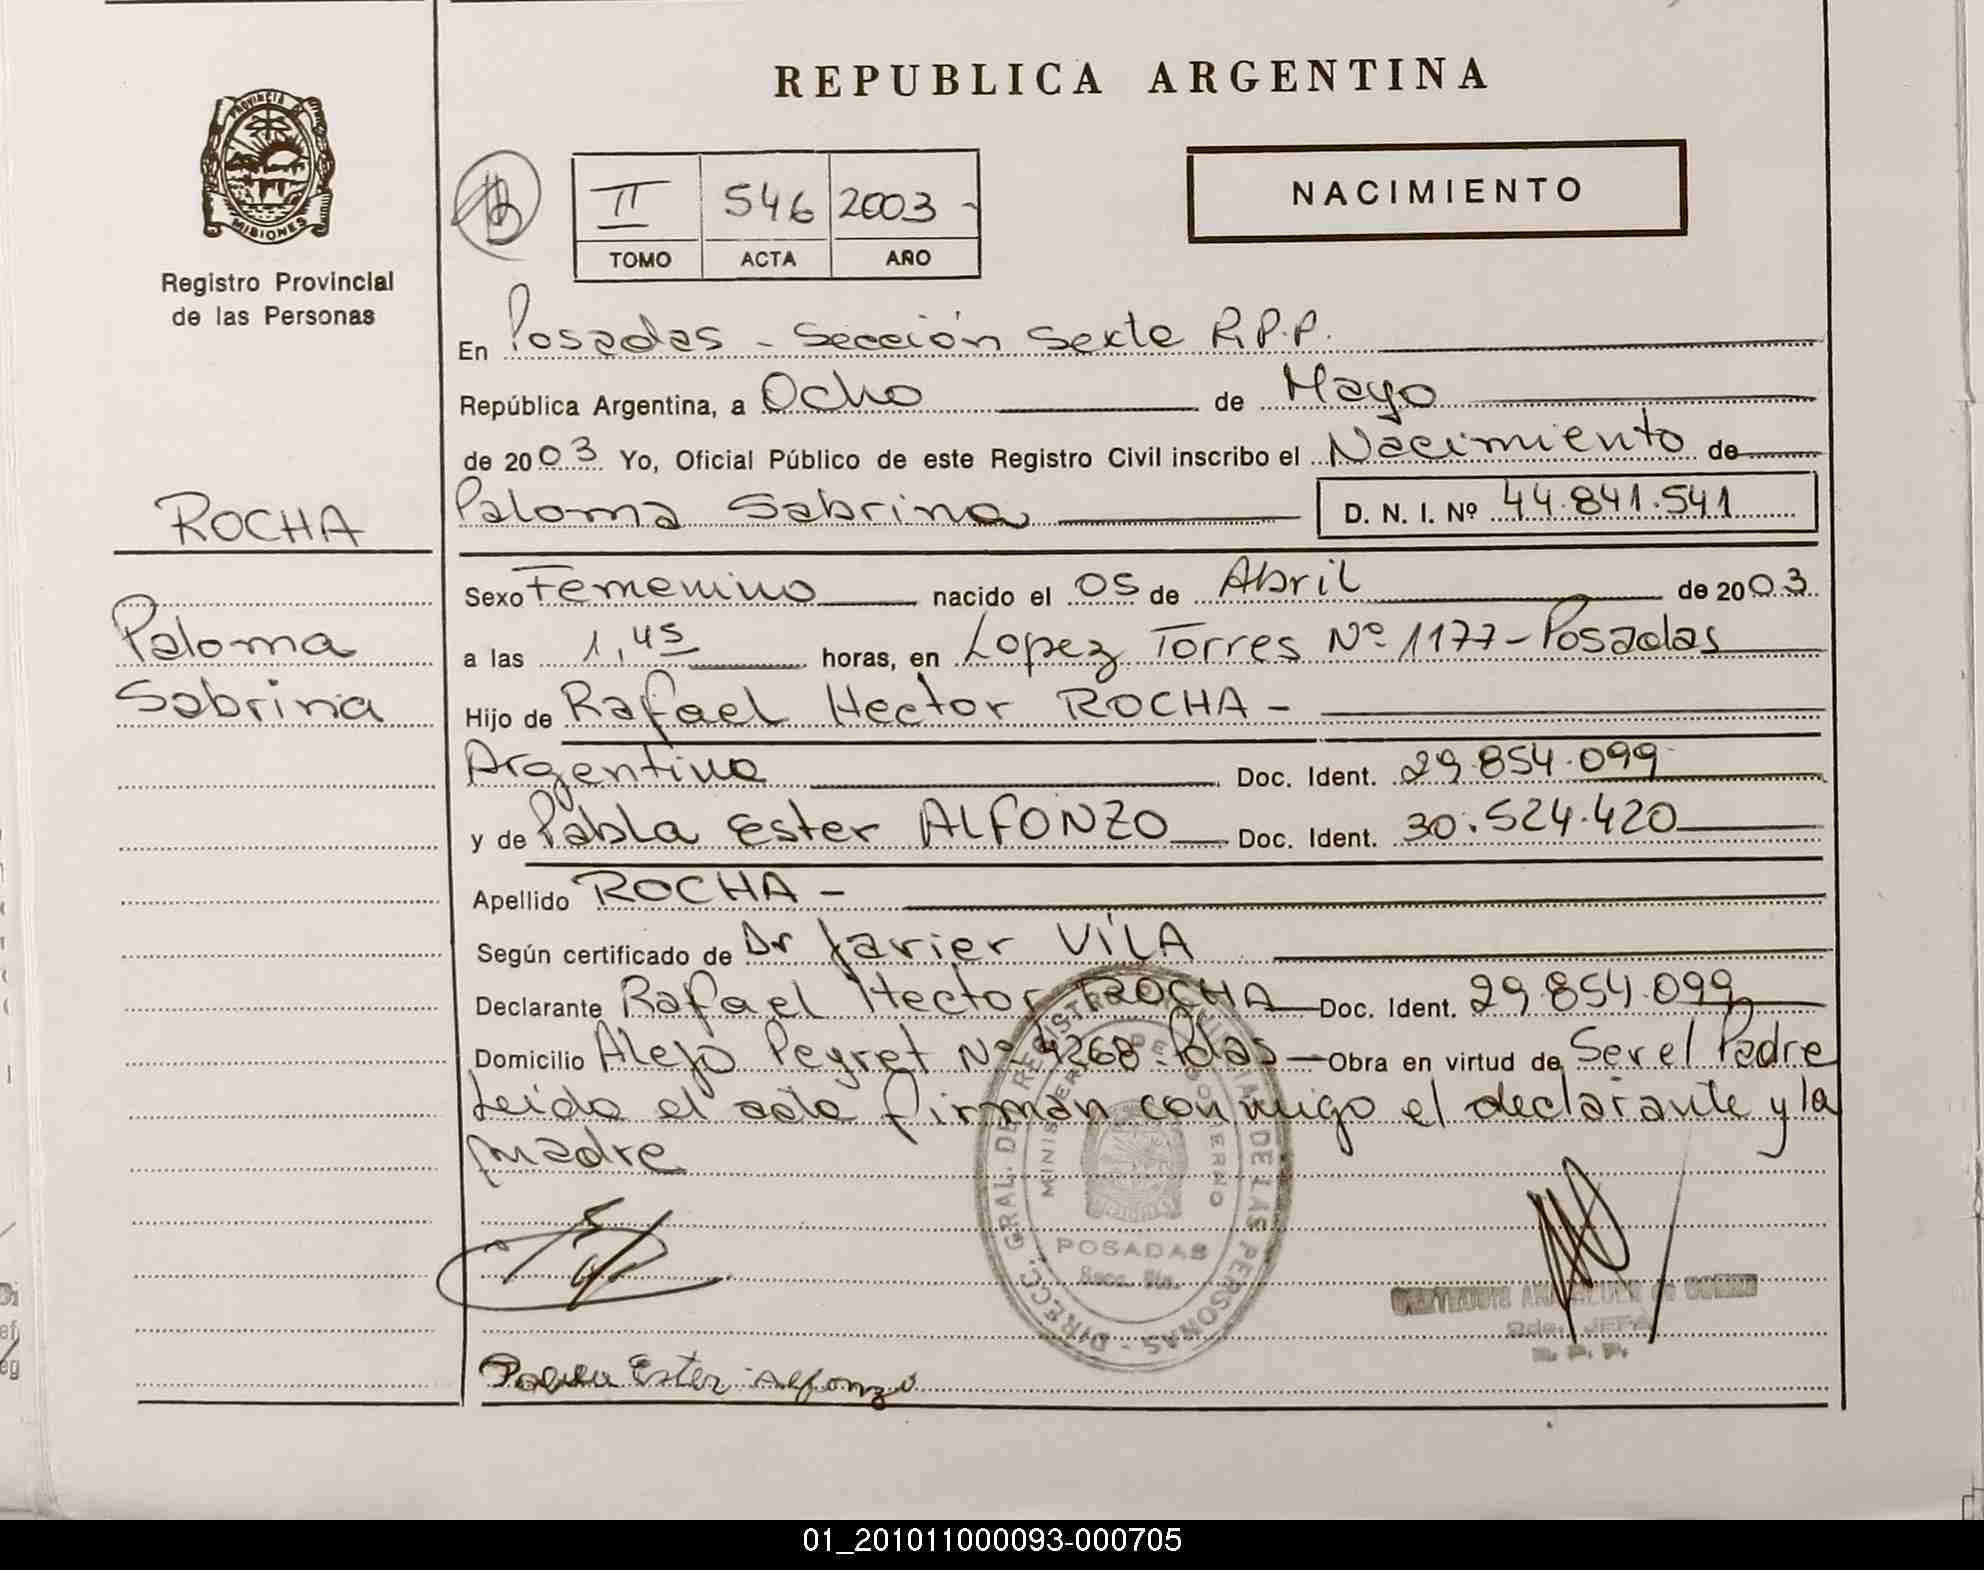 REPUBLICA ARGENTINA
PROVINCIA DE
MISIONES
Registro Provincial
de las Personas
II 546 2003 -
TOMO ACTA AÑO
NACIMIENTO
En Posadas - Sección Sexta R.P.P.
República Argentina, a Ocho de Mayo
de 2003 Yo, Oficial Público de este Registro Civil inscribo el Nacimiento de
Paloma Sabrina D. N. I. Nº 44.841.541
ROCHA
Paloma
Sabrina
Sexo Femenino nacido el 05 de Abril de 2003
a las 1,45 horas, en Lopez Torres Nº 1177-Posadas
Hijo de Rafael Hector ROCHA -
Argentino Doc. Ident. 29.854.099
y de Pabla Ester ALFONZO Doc. Ident. 30.524.420
Apellido ROCHA -
Según certificado de Dr Javier VILA
Declarante Rafael Hector ROCHA Doc. Ident. 29.854.099
Domicilio Alejo Peyret Nº 4268-Pdas Obra en virtud de Ser el Padre
Leída el acta firman conmigo el declarante y la
madre
DIRECC. GRAL. DE REGISTRO PROVINCIAL DE LAS PERSONAS -
MINISTERIO DE GOBIERNO
POSADAS
Secc. 6ta.
JEFA
R. P. P.
Pabla Ester Alfonzo
01_201011000093-000705